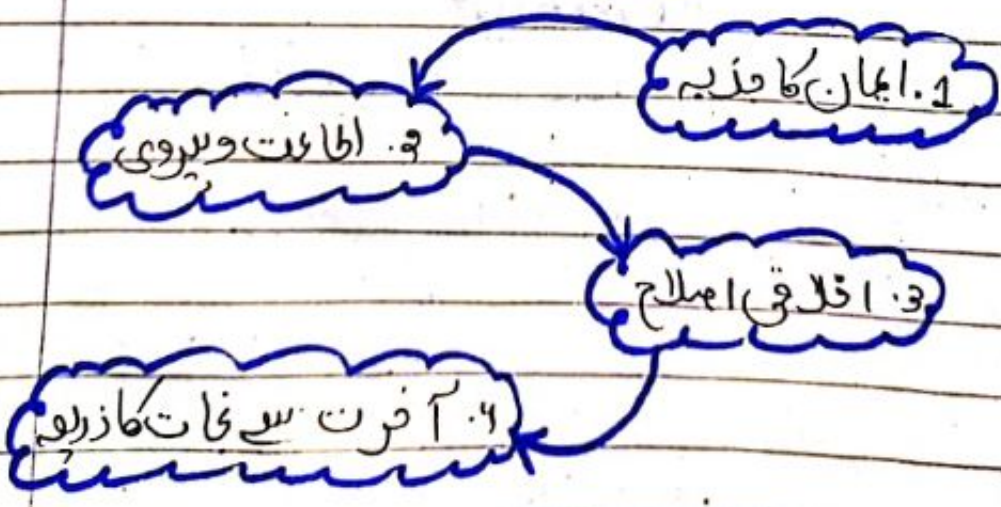 1. ایمان کا جذبہ
2. اطاعت و پیروی
3. اخلاقی اصلاح
4. آخرت سے نجات کا ذریعہ